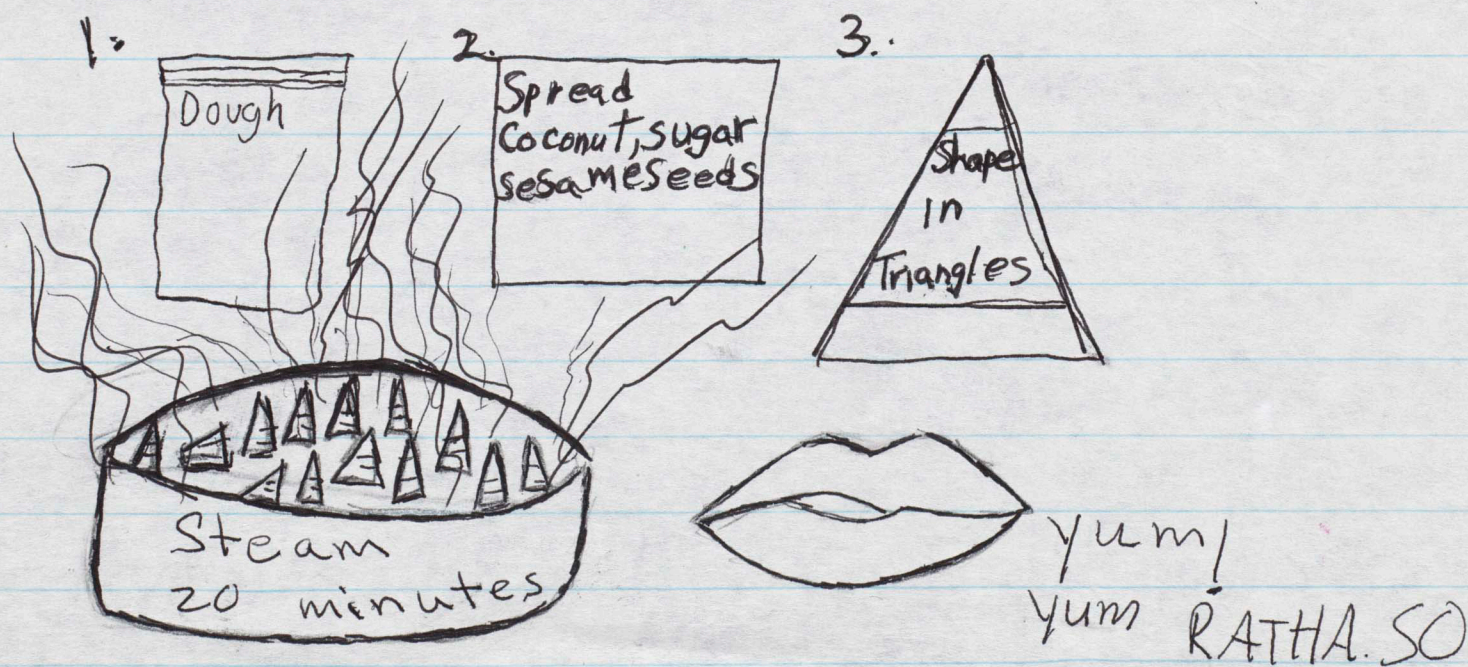 1.
Dough
2.
Spread
Coconut, sugar
sesameseeds
3.
Shape
in
Triangles
Steam
20 minutes
yum!
yum
RATHA. SO